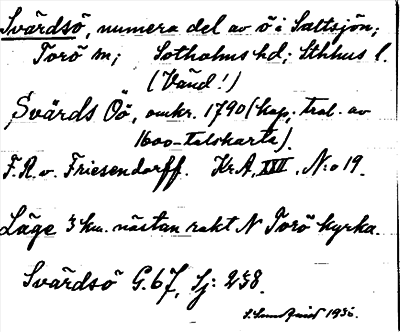 Svärdsö, numera del av ö i Saltsjön;
Torö sn; Sotholms hd; Sthlms l.
(Vänd!)
Svärds Öö, omkr. 1790 (kop. trol. av
1600-talskarta).
F.R.v. Friesendorff. Kr.A, XVII, N:o 19.
Läge 3 km. nästan rakt N Torö kyrka.
Svärdsö G.67, Sj: 258.
1936